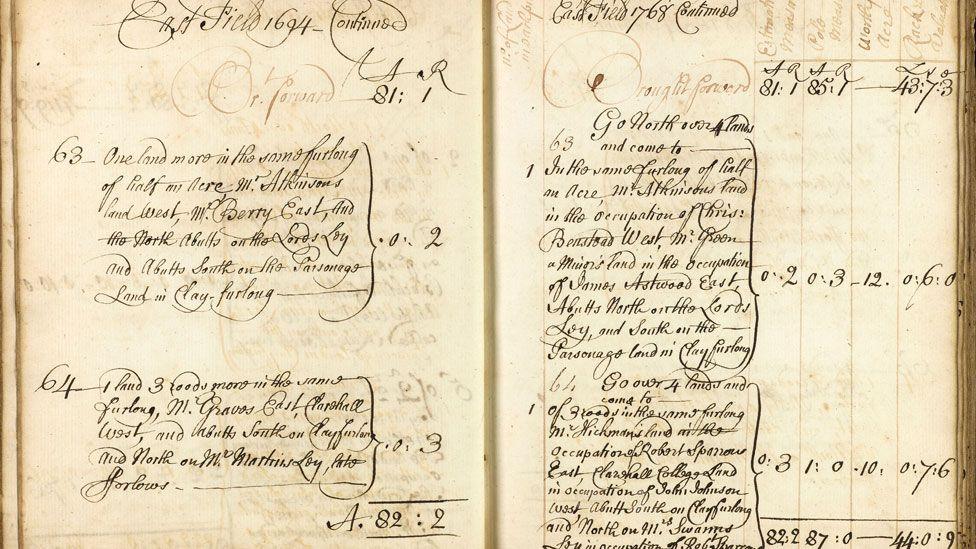 East Field 1694 Continued
A R
Br. forward 81: 1
63 One land more in the same furlong
of half an Acre, Mr. Atkinsons
land West, Mr. Berry East, And
the North Abutts on the Lords Ley
And Abutts South on the Parsonage
Land in Clay-furlong
0: 2
64 1 land 3 roods more in the same
furlong, Mr. Graves East Clarehall
West, and Abutts South on Clayfurlong
And North on Mr. Martins Ley, late
0: 3
A. 82: 2
East Field 1768 Continued
Worth
Acre
A R A R
Brought forward 81: 1 85: 1 43: 7: 3
Go North over 4 lands
63 and come to
1 In the same furlong of half
an Acre, Mr. Atkinsons land
in the occupation of Chris:
Benstead West Mr. Green
a Minors land in the occupation
of James Astwood East,
Abutts North on the Lords
Ley, and South on the
Parsonage land in Clayfurlong
0: 2 0: 3 12. 0: 6: 0
64 Go over 4 lands and
come to
1 of 3 roods in the same furlong
Mr. Hickmans land in the
occupation of Robert Sparrow
East, Clarehall College Land
in occupation of John Johnson
West Abutt South on Clayfurlong
and North on Mrs. Swanns
Ley in occupation of Rob.
0: 3 1: 0 10: 0: 7: 6
82: 2 87: 0 44: 0: 9